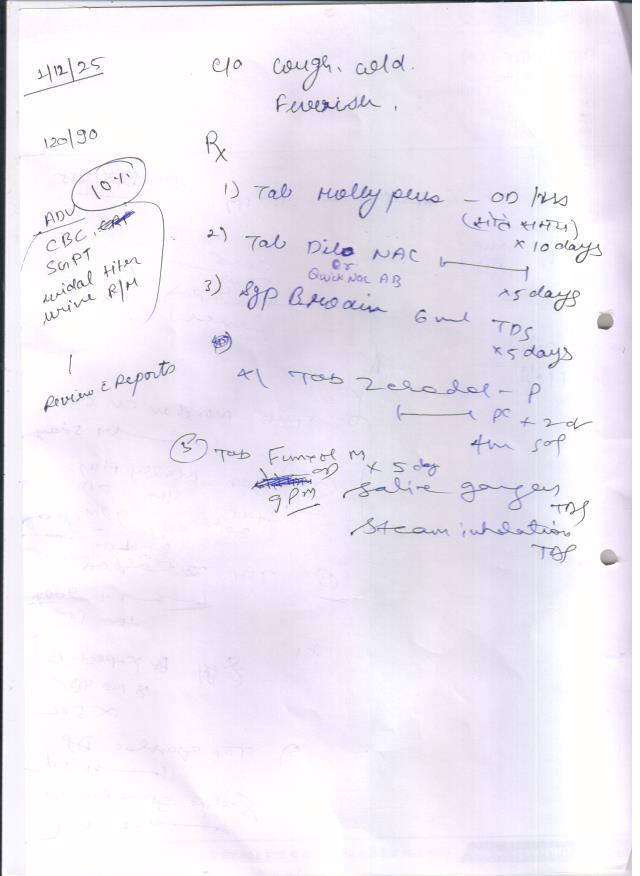 1/12/25
c/o cough. cold.
Feverish.
120/90
Rx
10%
ADV
CBC,
SGPT
widal titer
urine R/M
Review c Reports
1) Tab Molly plus - OD/HS
(सोते समय)
x 10 days
2) Tab Dilo NAC
or
Quick Nac AB
x 5 days
3) Syp Brodin 6 ml TDS
x 5 days
4) Tab Zerodol - P
PC x 2d
sos
5) Tab M
OD x 5 day
9 PM
Saline gargles
TDS
Steam inhalation
TDS